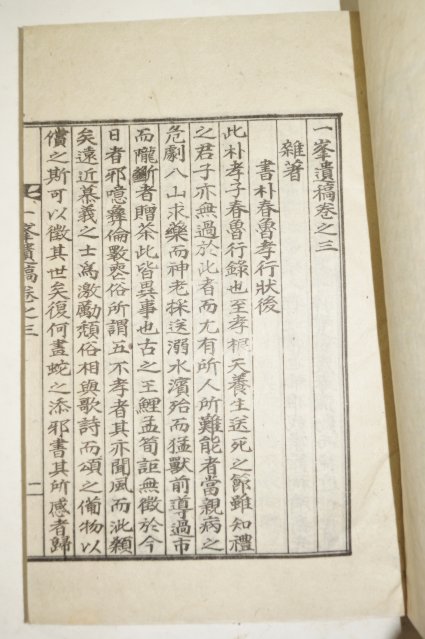 一峯遺稿卷之三
雜著
書朴春魯孝行狀後
此朴孝子春魯行錄也至孝根天養生送死之節雖知禮
之君子亦無過於此者而尤有所人所難能者當親病之
危劇入山求藥而神老採送溺水濱殆而猛獸前導過市
而隴斷者贈茶此皆異事也古之王鯉孟筍詎無徵於今
日者邪噫彛倫斁衰俗所謂五不孝者其亦聞風而泚顙
矣遠近慕義之士爲激勵頹俗相與歌詩而頌之備物以
償之斯可以徵其世矣復何畫蛇之添邪書其所感者歸
一峯遺稿卷之三